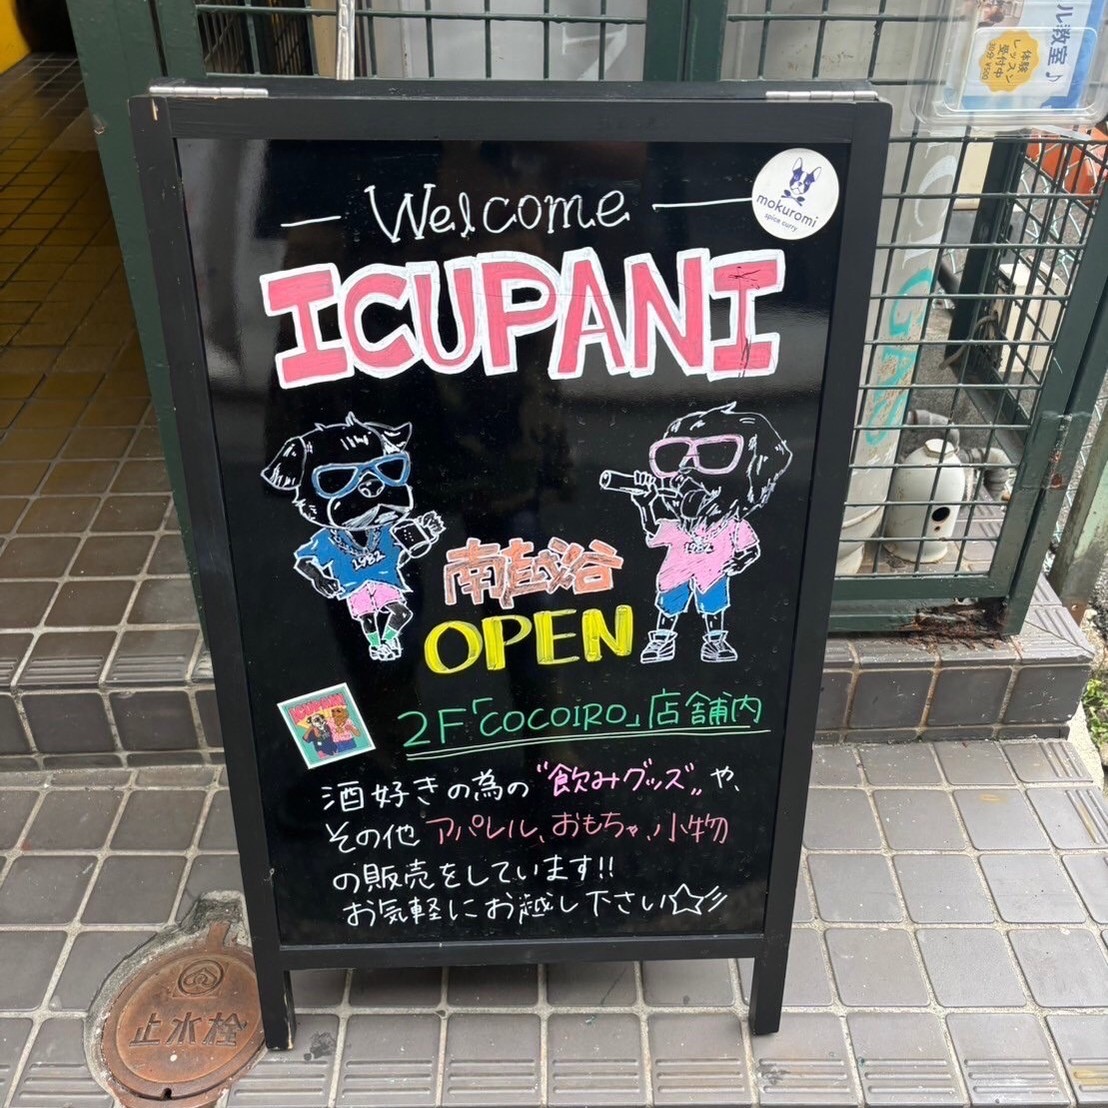 ル教室♪
体験
レッスン
受付中
mokuromi
spice curry
Welcome
ICUPANI
1982
1982
南越谷
OPEN
2F「COCOIRO」店舗内
酒好きの為の"飲みグッズ"や、
その他 アパレル、おもちゃ、小物
の販売をしています!!
お気軽にお越し下さい☆彡
止水栓